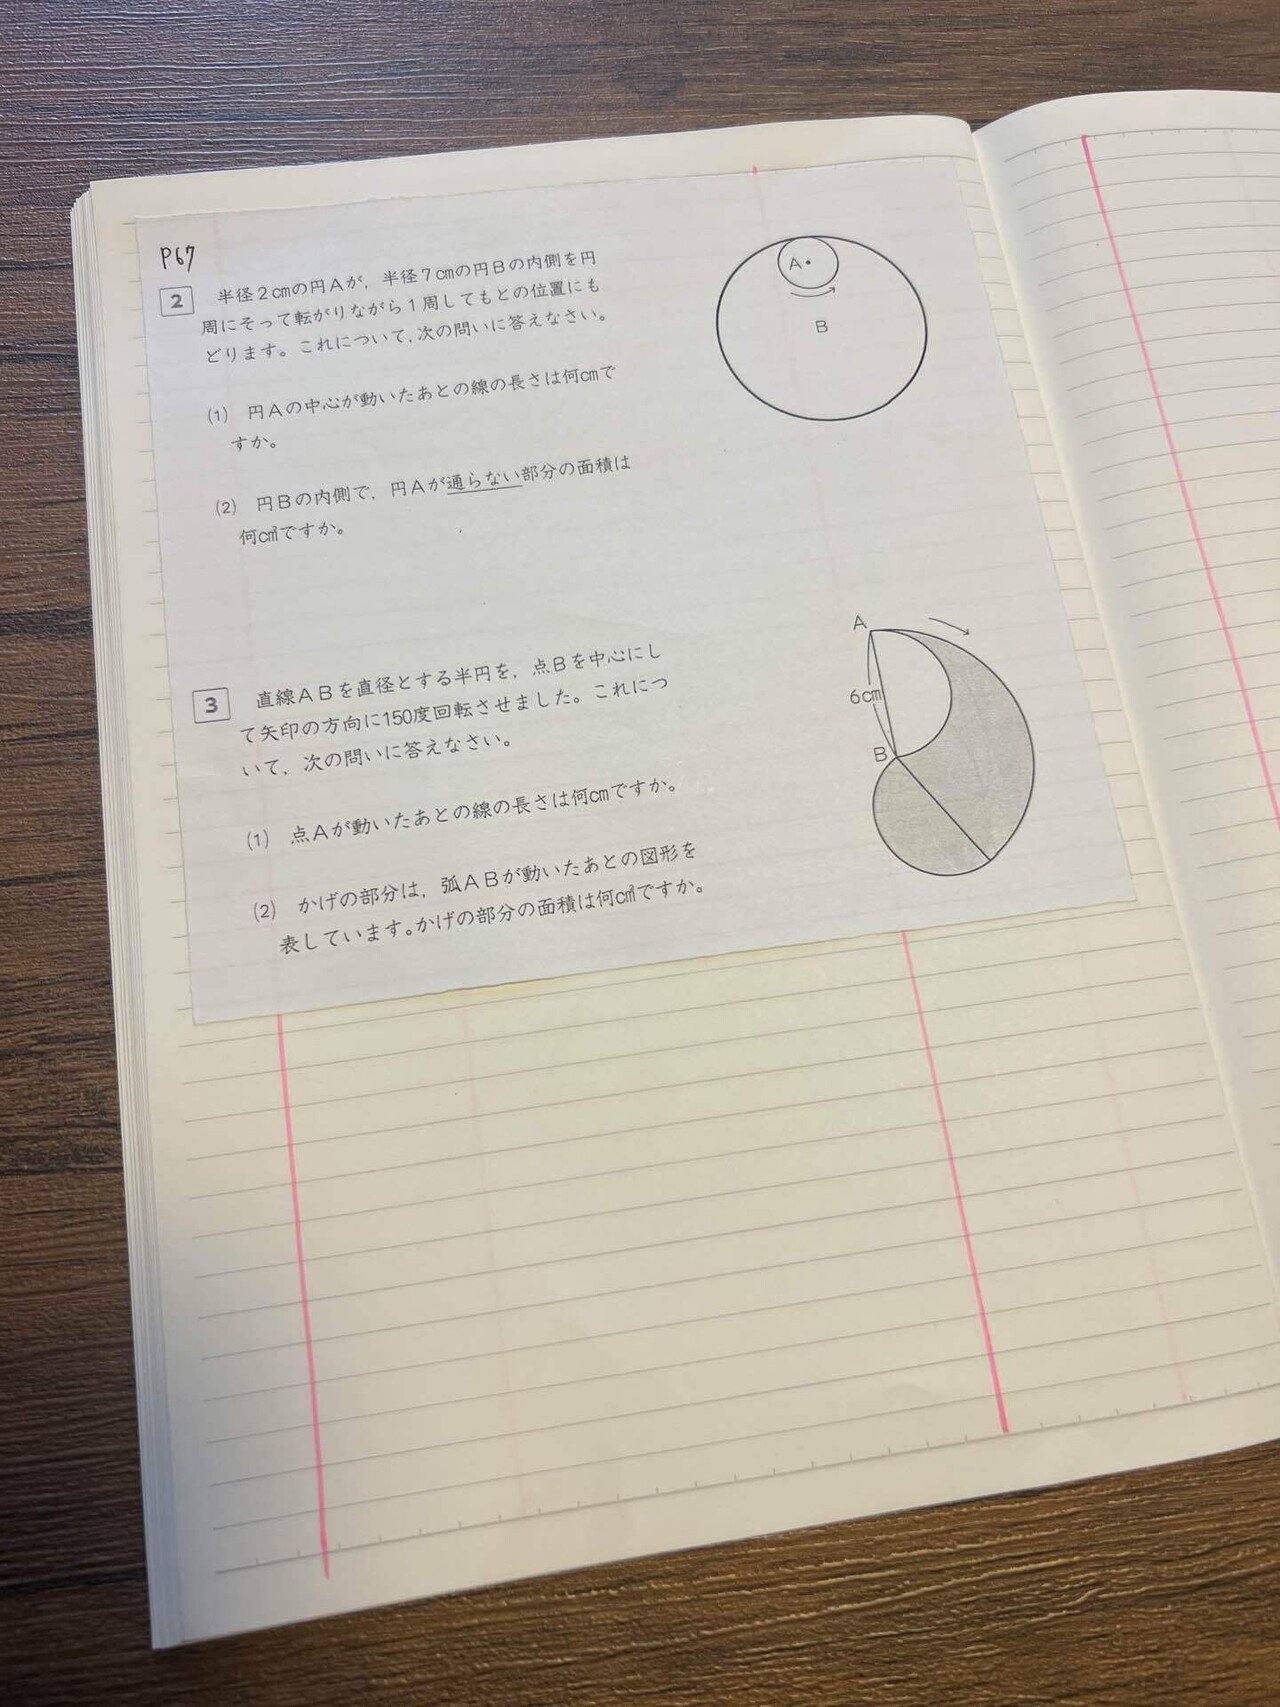 P67
2 半径2cmの円Aが，半径7cmの円Bの内側を円
周にそって転がりながら1周してもとの位置にも
どります。これについて，次の問いに答えなさい。
(1) 円Aの中心が動いたあとの線の長さは何cmで
すか。
(2) 円Bの内側で，円Aが通らない部分の面積は
何㎠ですか。
A
B
3 直線ABを直径とする半円を，点Bを中心にし
て矢印の方向に150度回転させました。これにつ
いて，次の問いに答えなさい。
(1) 点Aが動いたあとの線の長さは何cmですか。
(2) かげの部分は，弧ABが動いたあとの図形を
表しています。かげの部分の面積は何㎠ですか。
A
6cm
B